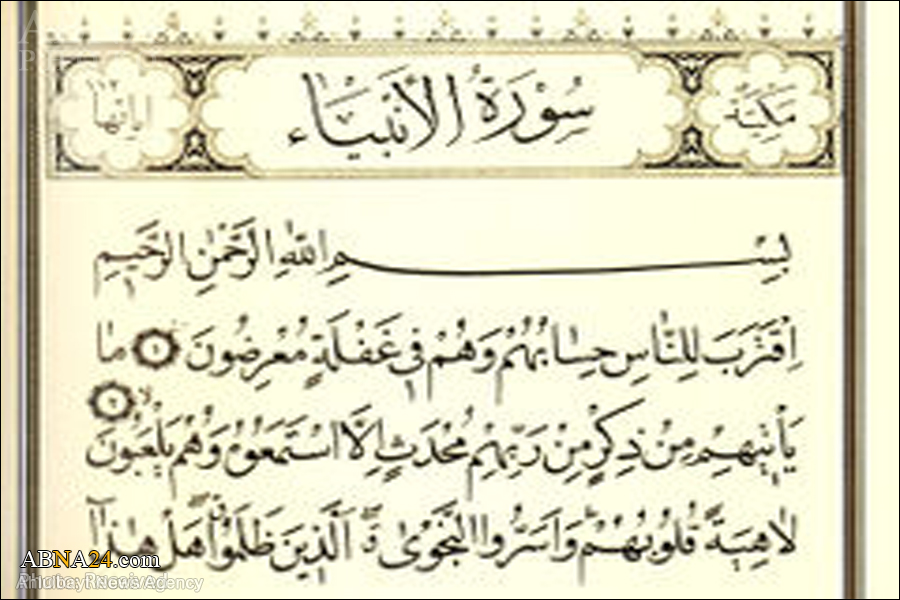 مَكِّيَّة
سُورَةُ الْأَنْبِيَاء
اٰيَاتُهَا ١١٢
بِسْمِ اللّٰهِ الرَّحْمٰنِ الرَّحِيمِ
اِقْتَرَبَ لِلنَّاسِ حِسَابُهُمْ وَهُمْ فِى غَفْلَةٍ مُعْرِضُونَ ١ مَا
يَأْتِيهِمْ مِنْ ذِكْرٍ مِنْ رَبِّهِمْ مُحْدَثٍ اِلَّا اسْتَمَعُوهُ وَهُمْ يَلْعَبُونَ ٢
لَاهِيَةً قُلُوبُهُمْ وَاَسَرُّوا النَّجْوٰى الَّذِينَ ظَلَمُوا هَلْ هٰذَا
ABNA24.com
AhlulBayt News Agency